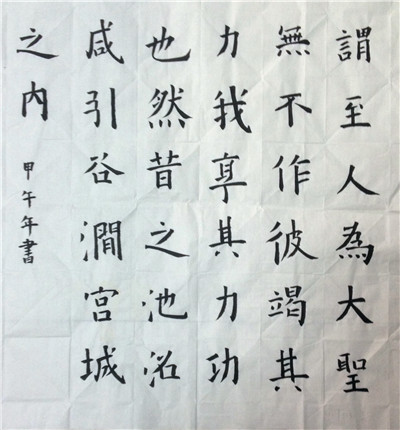 謂至人為大聖
無不作彼竭其
力我享其力功
也然昔之池沼
咸引谷澗宮城
之内
甲午年書